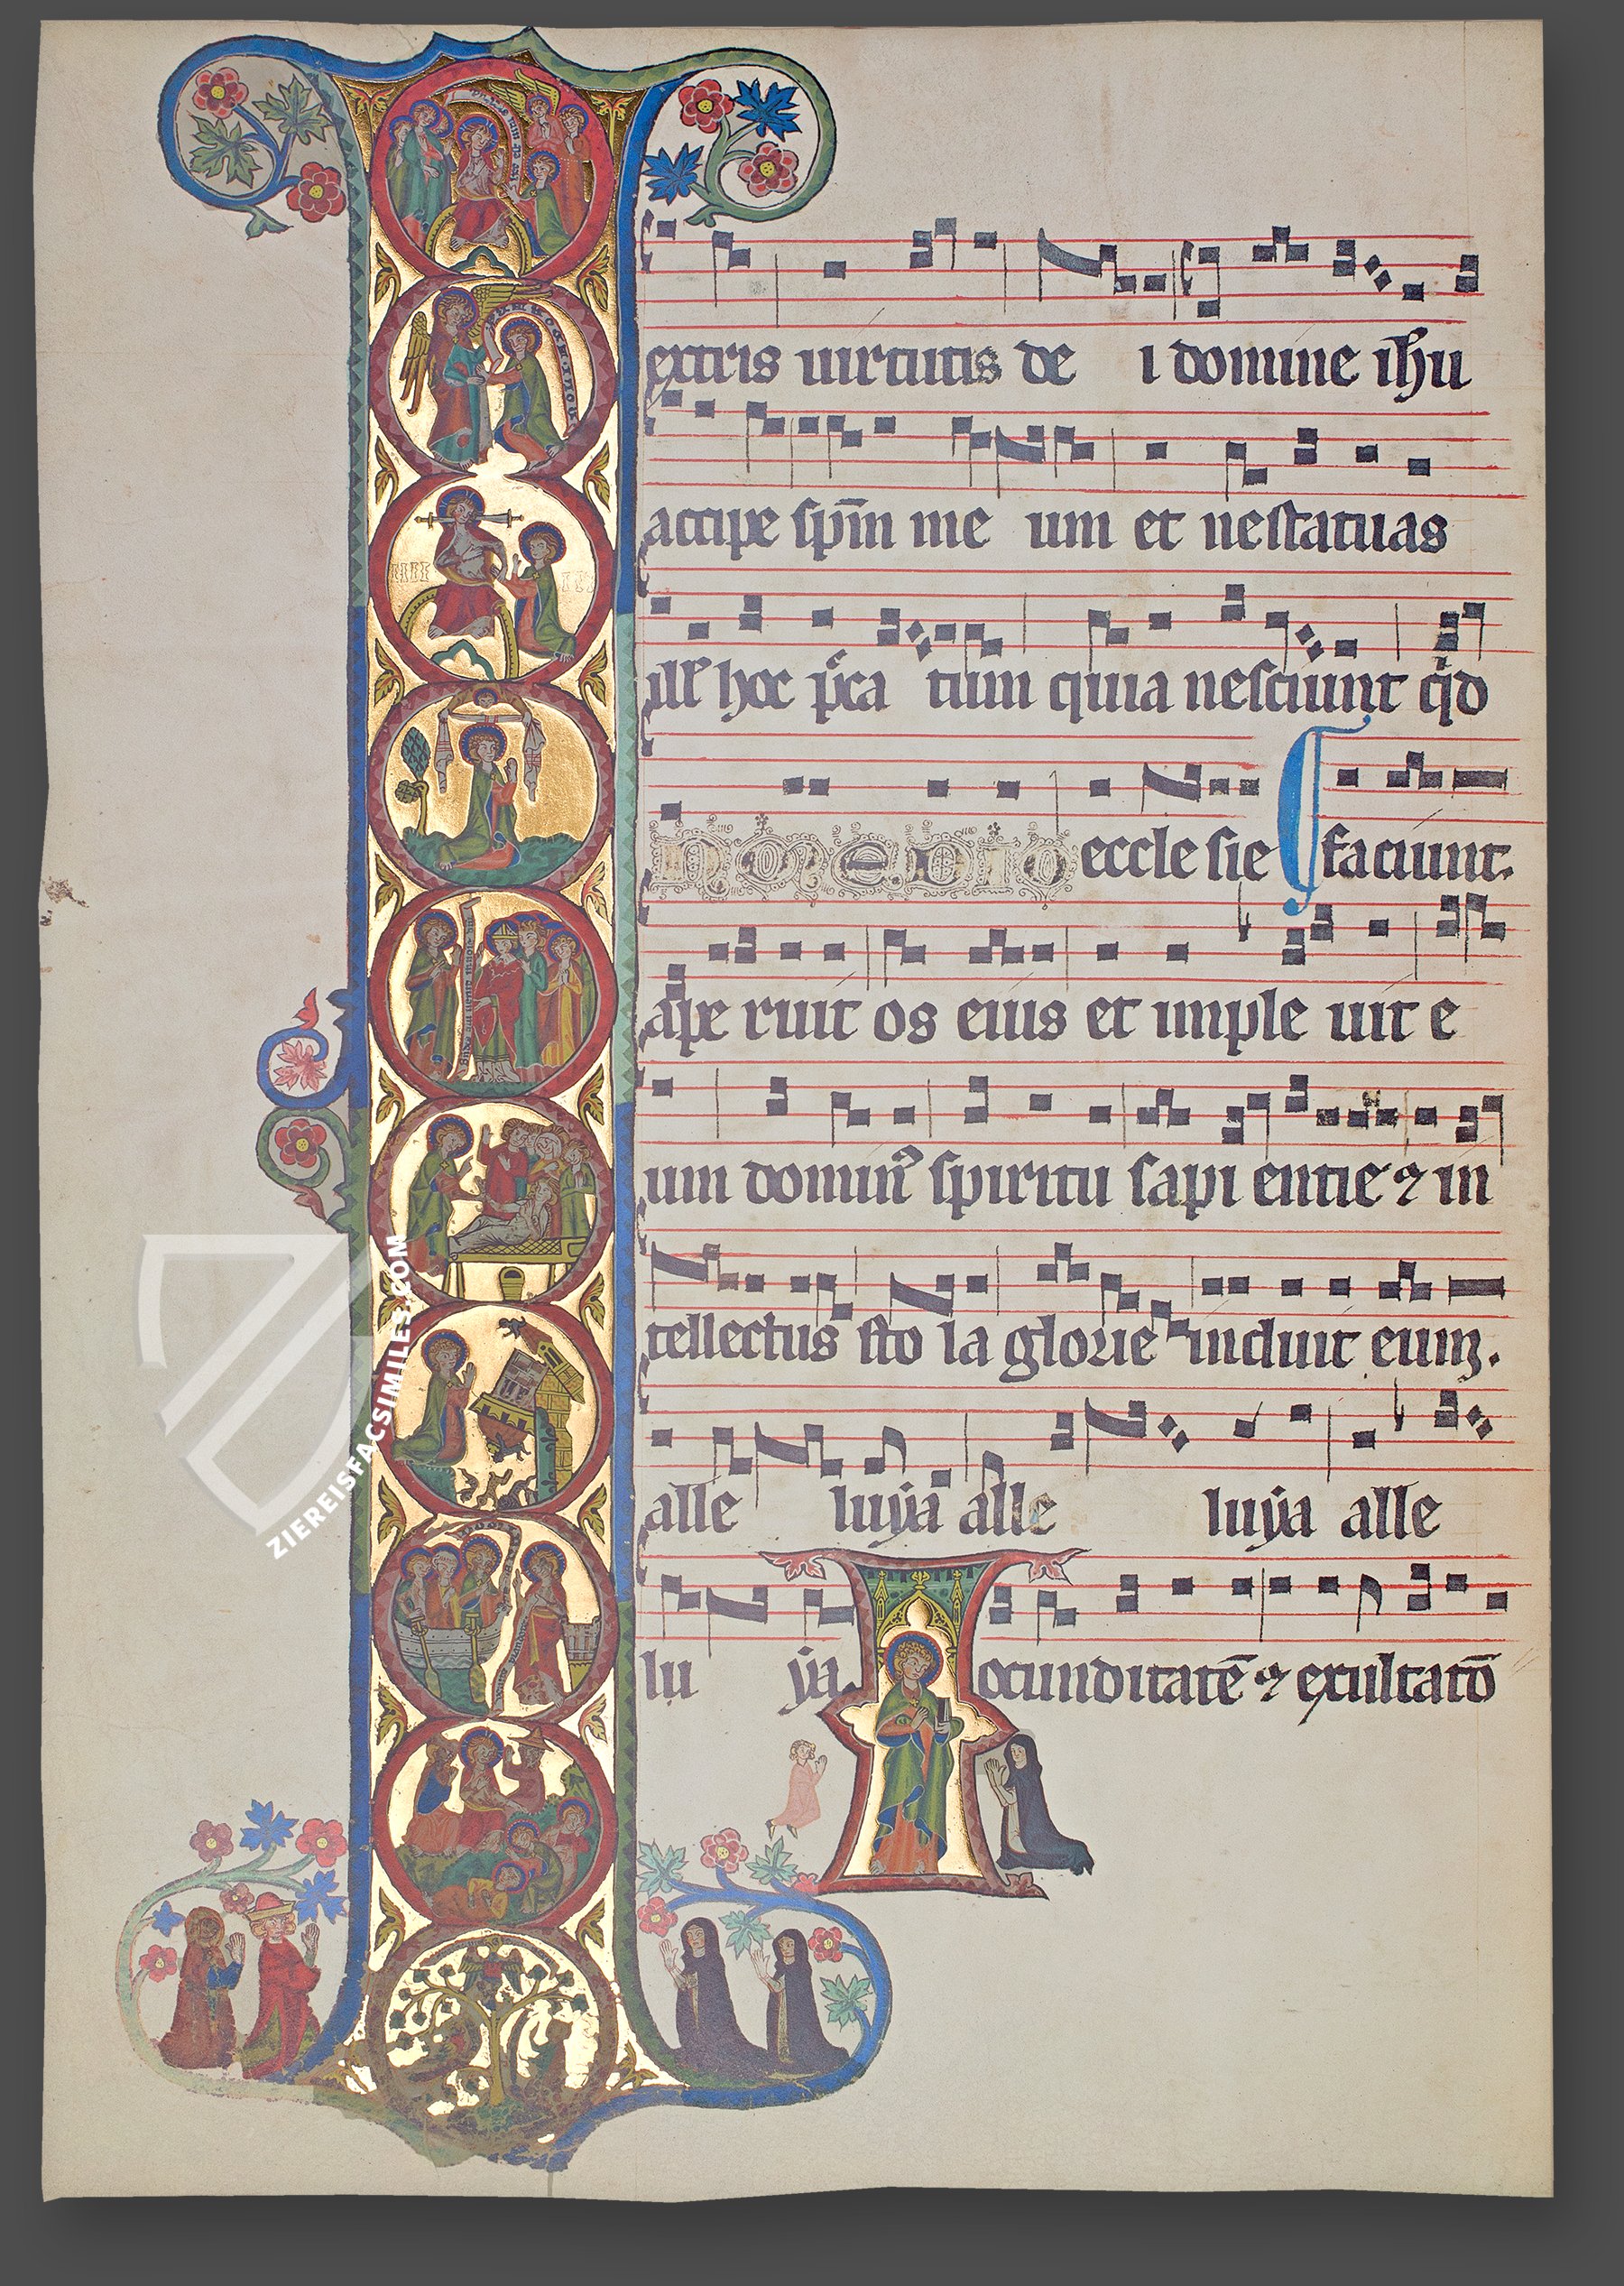 extris uirtutis de i domine ihu
accipe spm̄ me um et ne statuas
ill' hoc pcca tum quia nesciunt qd
N MEDIO eccle sie faciunt.
ape ruit os eius et imple uit e
um domin⁹ spiritu sapi entie ⁊ in
tellectus sto la glorie induit eum.
alle luẏa alle luẏa alle
lu ẏa. ocunditatē ⁊ exultatō
ZIEREISFACSIMILES.COM